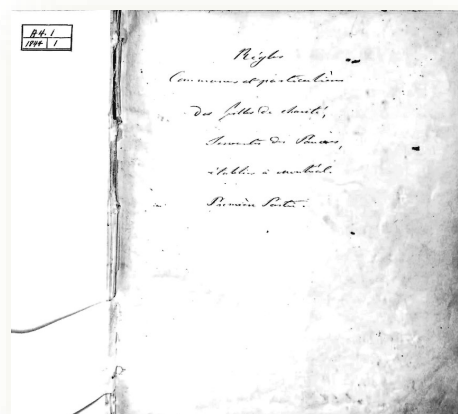 A4.1
1844 | 1
Règles
Communes et particulières
Des filles de charité,
Servantes des Pauvres,
établies à Montréal.
Première Partie.